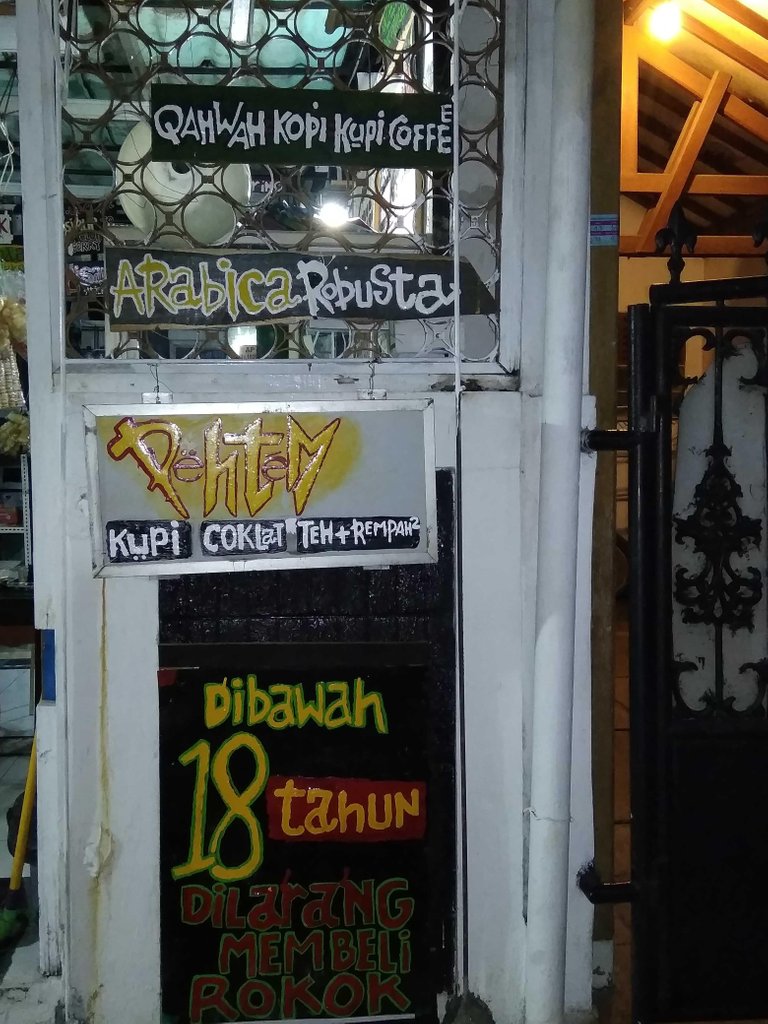 QAHWAH KOPI KUPI COFFEE
ARabica Robusta
PëhtëM
KUPI COKLaT TEH+REMPAH²
DibaWaH
18 taHUN
DILaRaNG
MEMBELI
ROKOK